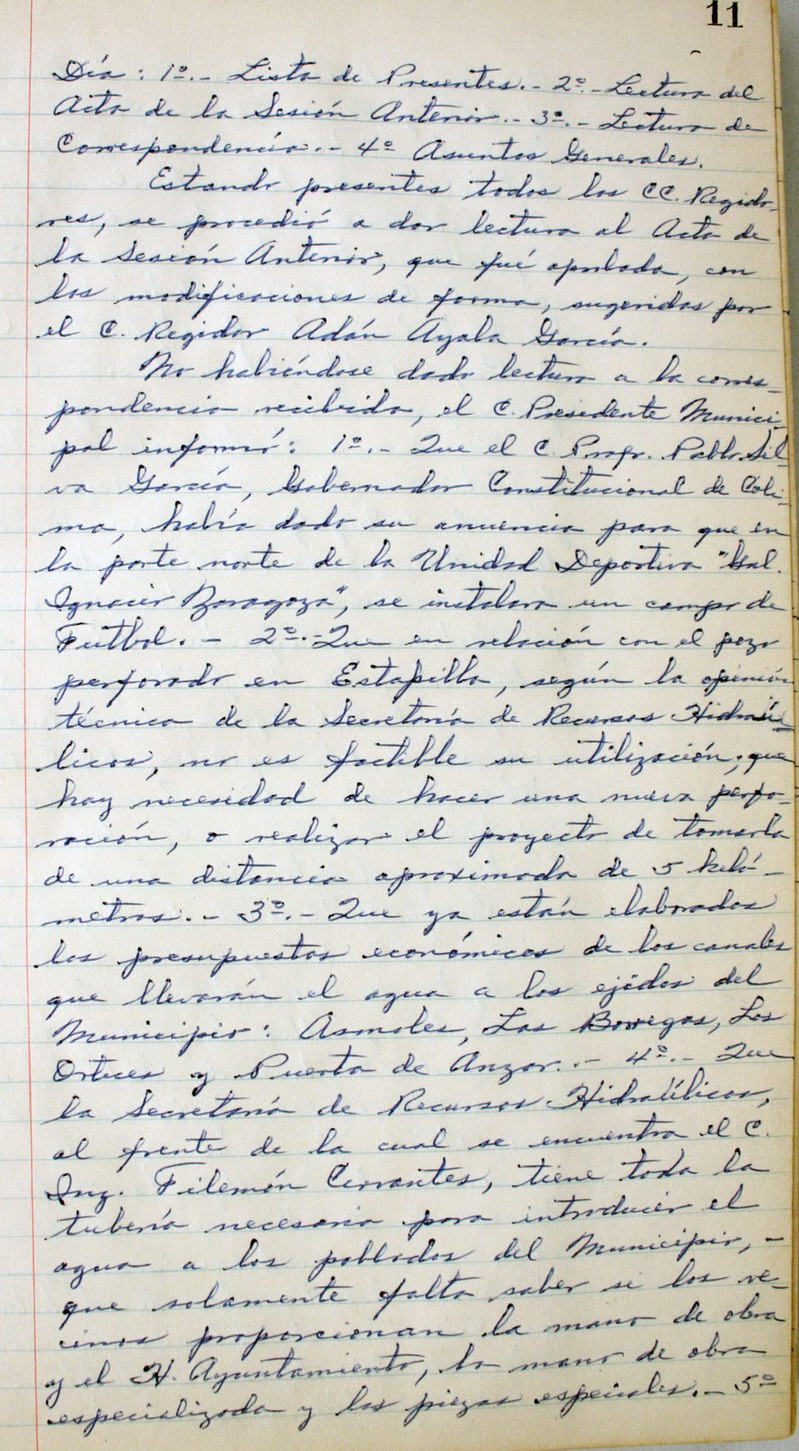 11
Día : 1º.- Lista de Presentes.- 2º.- Lectura del
Acta de la Sesión Anterior.- 3º.- Lectura de
Correspondencia.- 4º Asuntos Generales.
Estando presentes todos los CC. Regido-
res, se procedió a dar lectura al Acta de
la Sesión Anterior, que fué aprobada, con
las modificaciones de forma, sugeridas por
el C. Regidor Adán Ayala García.
No habiéndose dado lectura a la corres-
pondencia recibida, el C. Presidente Munici-
pal informó: 1º.- Que el C. Profr. Pablo Sil-
va García, Gobernador Constitucional de Coli-
ma, había dado su anuencia para que en
la parte norte de la Unidad Deportiva "Gral.
Ignacio Zaragoza", se instalara un campo de
Futbol.- 2º.- Que en relación con el pozo
perforado en Estapilla, según la opinión
técnica de la Secretaría de Recursos Hidráu-
licos, no es factible su utilización; que
hay necesidad de hacer una nueva perfo-
ración, o realizar el proyecto de tomarla
de una distancia aproximada de 5 kiló-
metros.- 3º.- Que ya están elaborados
los presupuestos económicos de los canales
que llevarán el agua a los ejidos del
Municipio: Asmoles, Los Borregos, Los
Ortices y Puerta de Anzar.- 4º.- Que
la Secretaría de Recursos Hidraúlicos,
al frente de la cual se encuentra el C.
Ing. Filemón Cervantes, tiene toda la
tubería necesaria para introducir el
agua a los poblados del Municipio, -
que solamente falta saber si los ve-
cinos proporcionan la mano de obra
y el H. Ayuntamiento, la mano de obra
especializada y las piezas especiales.- 5º